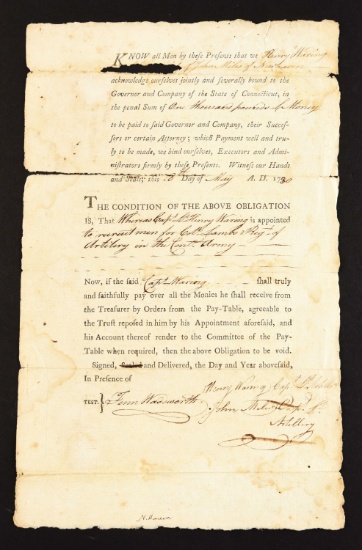 KNOW all Men by these Presents that we Henry Waring
John Miles of
acknowledge ourselves jointly and severally bound to the
Governor and Company of the State of Connecticut, in
the penal Sum of One thousand pounds L. Money
to be paid to said Governor and Company, their Succes-
sors or certain Attorney; which Payment well and tru-
ly to be made, we bind ourselves, Executors and Admi-
nistrators firmly by these Presents. Witness our Hands
and Seals, this Day of May A. D. 1780
THE CONDITION OF THE ABOVE OBLIGATION
IS, That Whereas Capt Lt Henry Waring is appointed
to recruit men for Colo Lambs Regt of
Artilery in the Contl Army
Now, if the said Capt Waring shall truly
and faithfully pay over all the Monies he shall receive from
the Treasurer by Orders from the Pay-Table, agreeable to
the Trust reposed in him by his Appointment aforesaid, and
his Account thereof render to the Committee of the Pay-
Table when required, then the above Obligation to be void.
Signed, Sealed and Delivered, the Day and Year abovesaid,
In Presence of
Henry Waring Capt Lt
TEST. Fenn Wadsworth
John Miles
Artillery